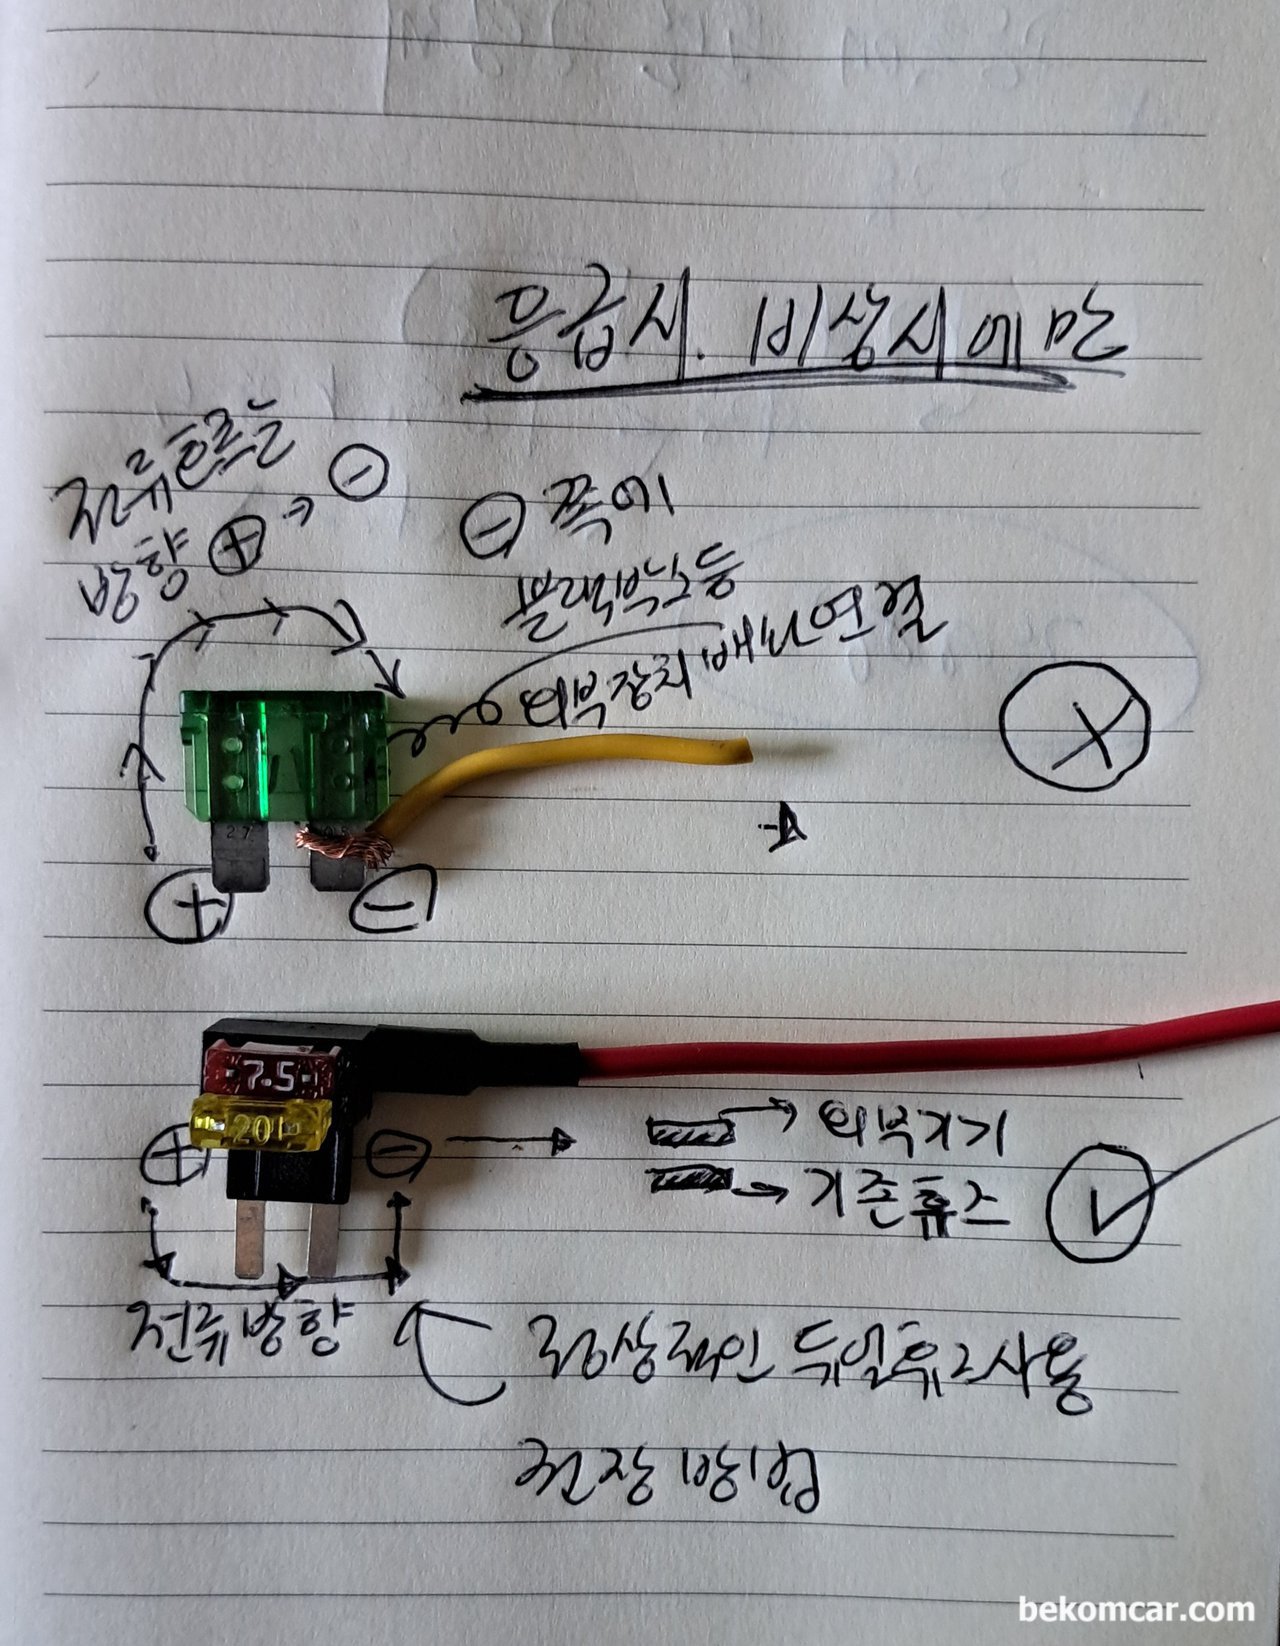 응급시. 비상시에만
전류흐르는
방향 ⊕ → ⊖
⊖ 쪽에
블랙박스등
외부장치 배선연결
X
27
05
⊕ ⊖
·7.5·
20
⊕ ⊖
→ 외부기기
→ 기존휴즈
V
전류방향
정상적인 듀얼휴즈사용
권장방법
bekomcar.com